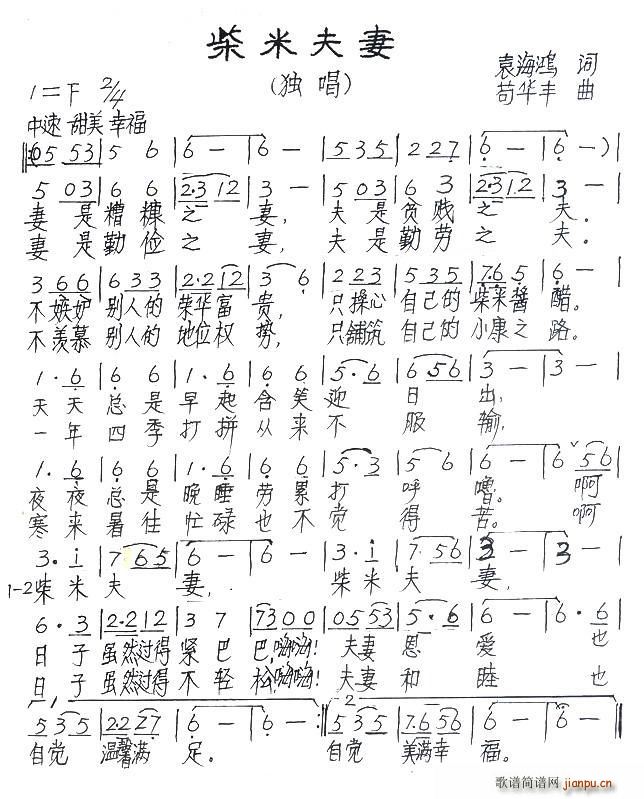 柴米夫妻
(独唱)
袁海鸿 词
苟华丰 曲
1=F 2/4
中速 甜美 幸福
05 53 | 5 6 | 6 - | 6 - | 535 | 2 27 | 6 - | 6 - )
5 03 | 6 6 | 2·3 12 | 3 - | 5 03 | 6 3 | 2·3 12 | 3 - |
妻是糟糠之妻, 夫是贫贱之夫。
妻是勤俭之妻, 夫是勤劳之夫。
3 66 | 6 33 | 2·2 12 | 3 6 | 2 23 | 535 | 7·6 5 | 6 - |
不嫉妒别人的荣华富贵, 只操心自己的柴米酱醋。
不羡慕别人的地位权势, 只铺筑自己的小康之路。
1· 6 | 6 6 | 1· 6 | 6 6 | 5· 6 | 6 56 | 3 - | 3 - |
天天总是早起含笑迎日出,
一年四季打拼从来不服输,
1· 6 | 6 6 | 1· 6 | 6 6 | 5· 3 | 5 6 | 6 - | 6 56 |
夜夜总是晚睡劳累打呼噜。 啊
寒来暑往忙碌也不觉得苦。 啊
3· i | 7 65 | 6 - | 6 - | 3· i | 7· 56 | 3 - | 3 - |
1-2柴米夫妻, 柴米夫妻,
6· 3 | 2·2 12 | 3 7 | 73 00 | 05 53 | 5· 6 | 6 - | 6· 6 |
日子虽然过得紧巴巴,嗨嗨! 夫妻恩爱也
日子虽然过得不轻松,嗨嗨! 夫妻和睦也
1, -2
535 | 22 27 | 6 - | 6 - :| 535 | 7·6 56 | 6 - | 6 - |
自觉温馨满足。 自觉美满幸福。
歌谱简谱网
jianpu.cn